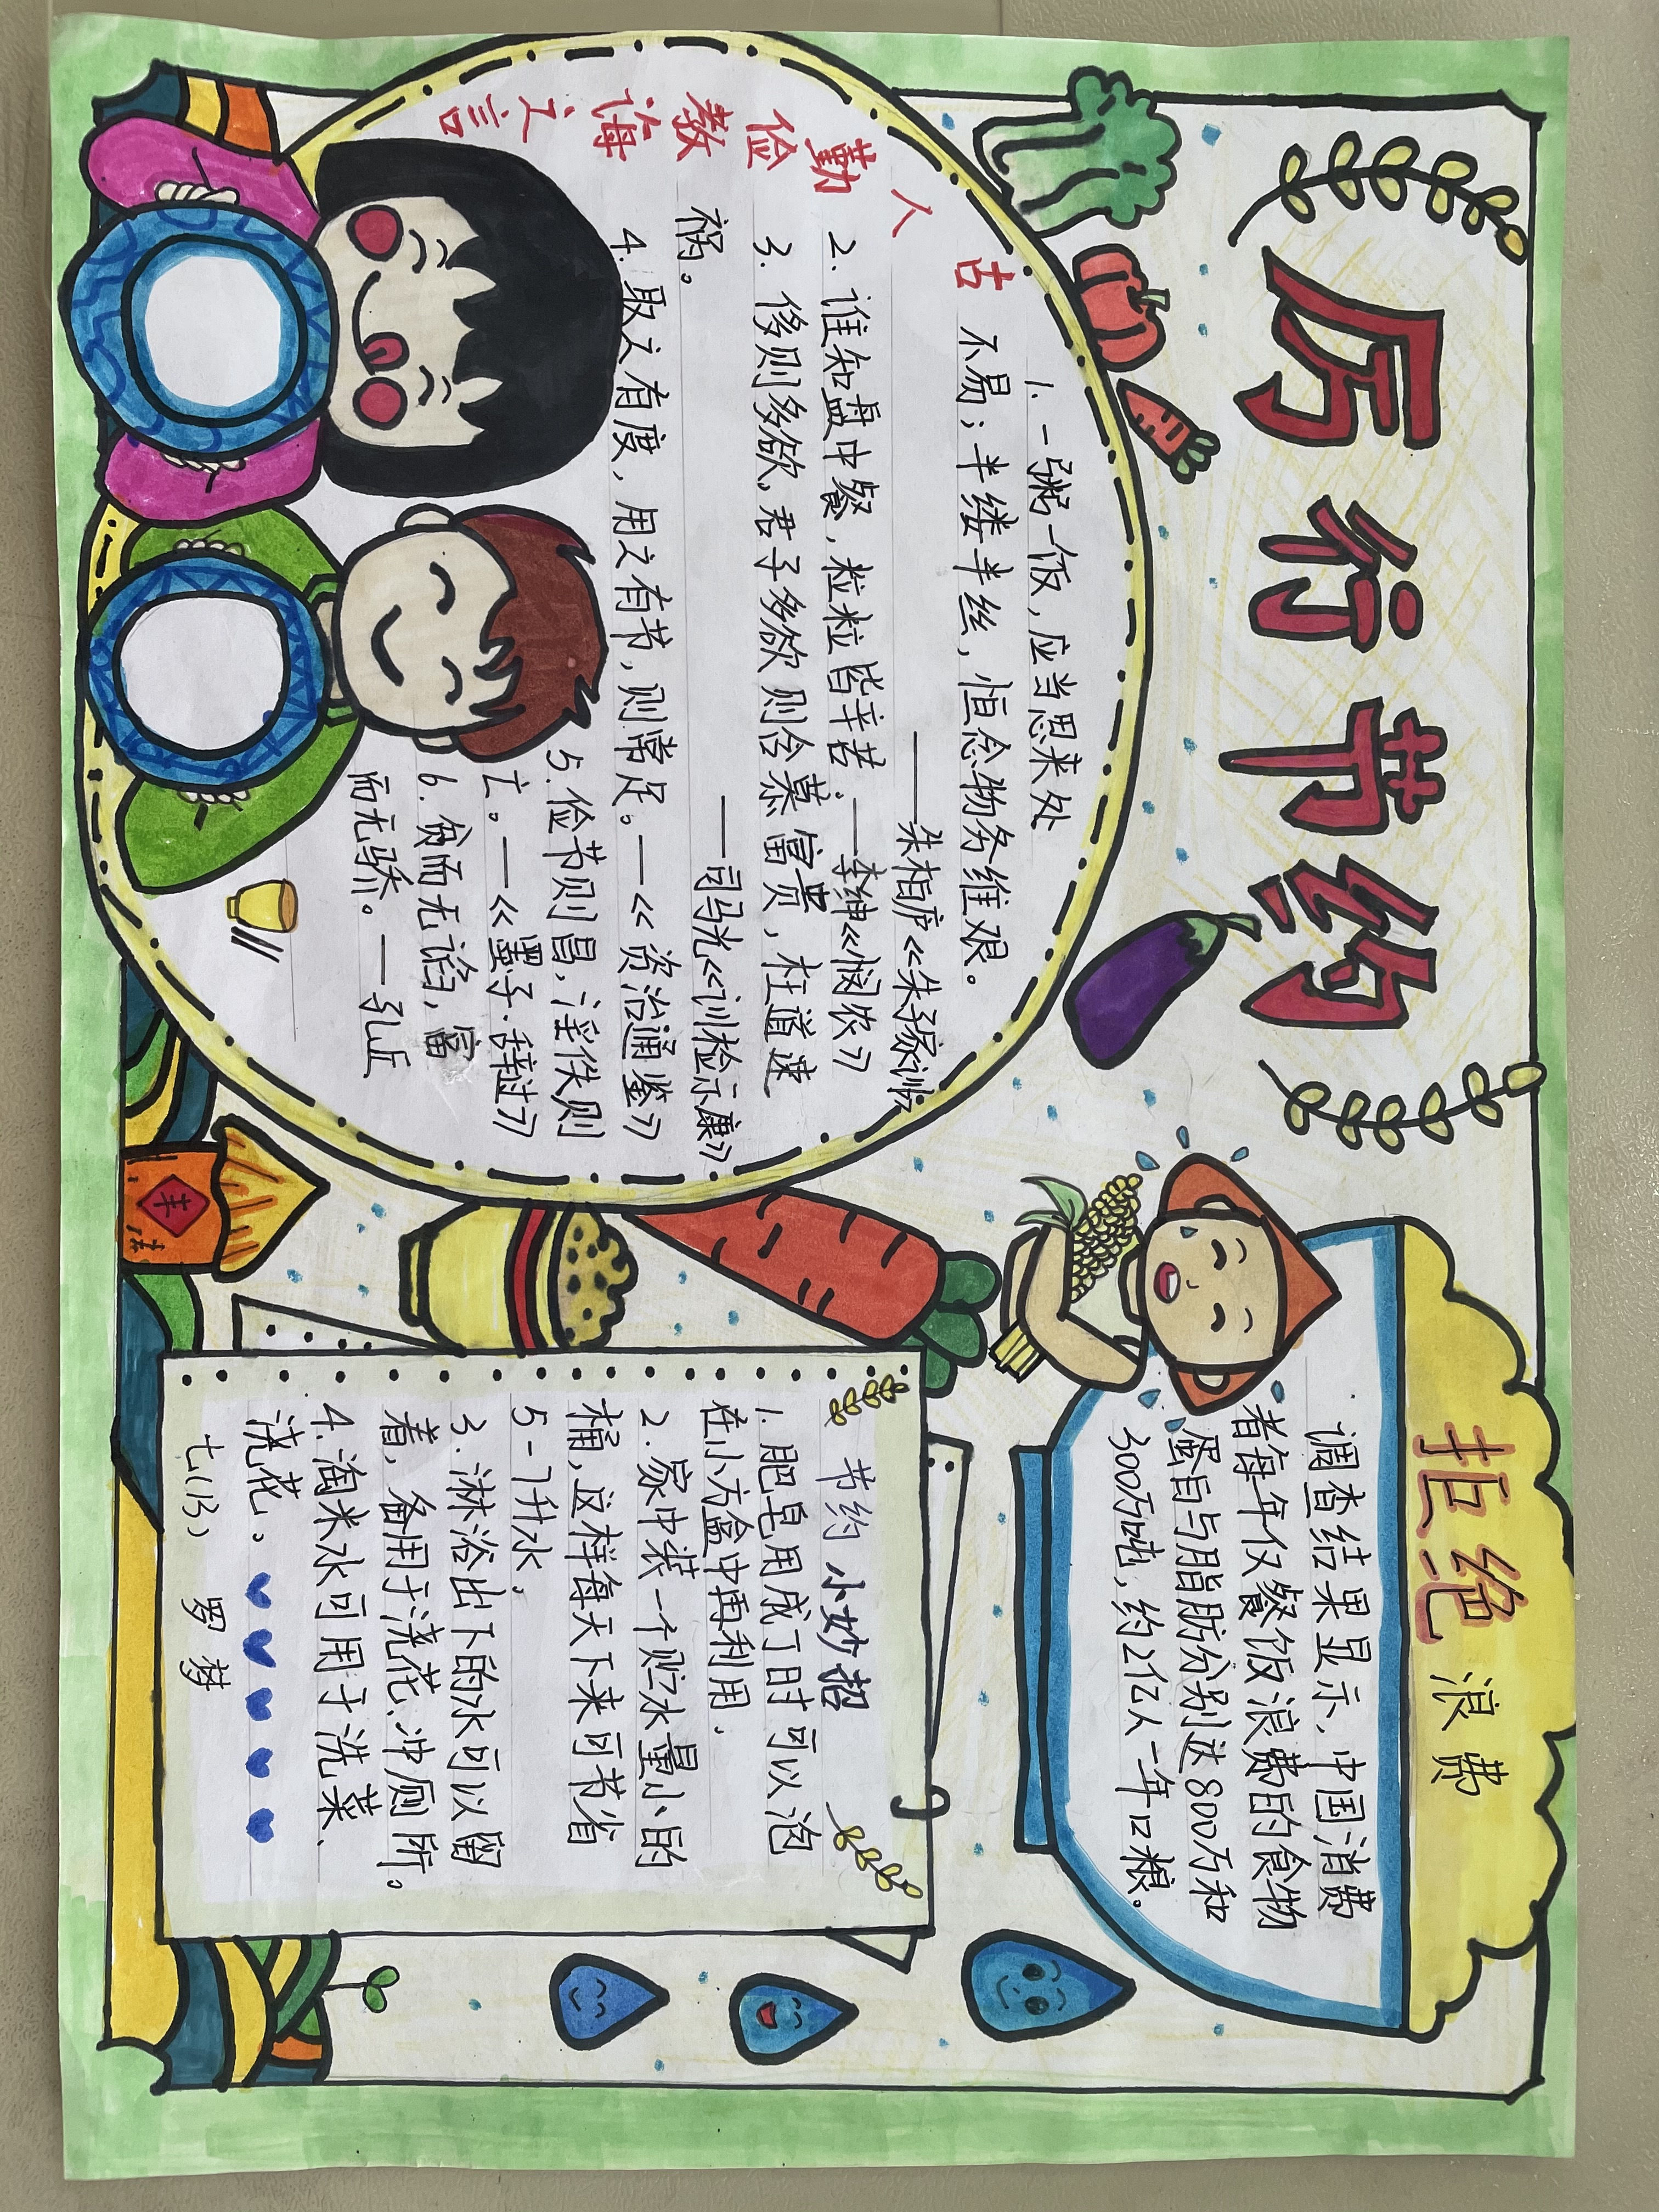 厉行节约
古人勤俭教诲之言
1. 一粥一饭，应当思来处
不易；半缕半丝，恒念物务维艰。
——朱柏庐《朱子家训》
2. 谁知盘中餐，粒粒皆辛苦。——李绅《悯农》
3. 侈则多欲，君子多欲则念慕富贵，枉道速
祸。——司马光《训检示康》
4. 取之有度，用之有节，则常足。——《资治通鉴》
5. 俭节则昌，淫佚则
亡。——《墨子·辞过》
6. 贫而无谄，富
而无骄。——孔丘
拒绝浪费
调查结果显示，中国消费
者每年仅餐饮浪费的食物
蛋白与脂肪分别达800万和
300万吨，约2亿人一年口粮。
丰
节约小妙招
1. 肥皂用成丁时可以泡
在小方盒中再利用.
2. 家中装一个贮水量小的
桶，这样每天下来可节省
5-7升水，
3. 淋浴出下的水可以留
着，备用于浇花、冲厕所。
4. 淘米水可用于洗菜、
浇花。
七(13) 罗梦